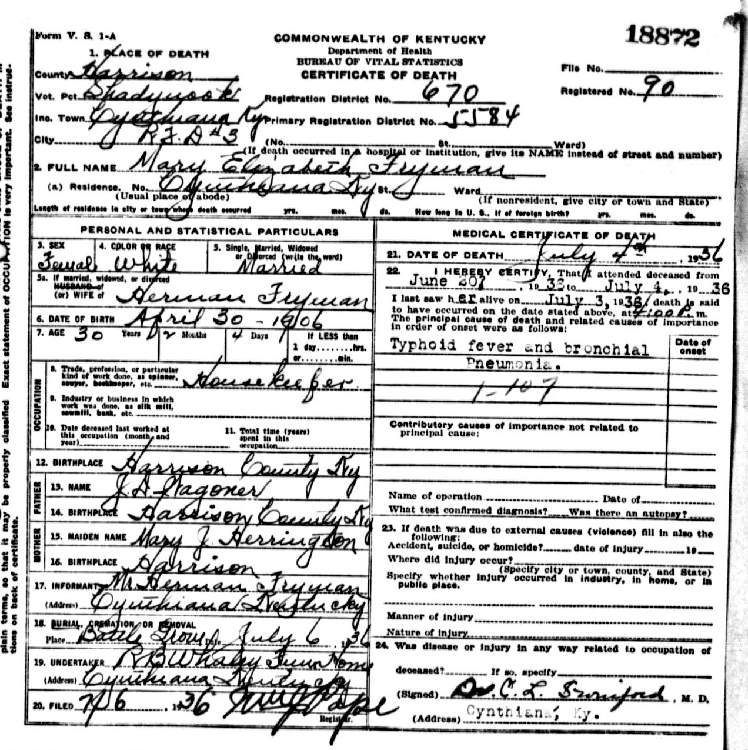 Form V. S. 1-A
COMMONWEALTH OF KENTUCKY
Department of Health
BUREAU OF VITAL STATISTICS
CERTIFICATE OF DEATH
18872
File No.
Registered No. 90
1. PLACE OF DEATH
County Harrison
Vot. Pct. Shadynook
Registration District No. 670
Inc. Town Cynthiana Ky
Primary Registration District No. 5584
City R.F.D #3 (No. St. Ward)
(If death occurred in a hospital or institution, give its NAME instead of street and number)
2. FULL NAME Mary Elizabeth Fryman
(a) Residence. No. Cynthiana Ky St. Ward
(Usual place of abode) (If nonresident, give city or town and State)
Length of residence in city or town where death occurred yrs. mos. ds. How long in U. S., if of foreign birth? yrs. mos. ds.
PERSONAL AND STATISTICAL PARTICULARS
3. SEX 4. COLOR OR RACE 5. Single, Married, Widowed
or Divorced (write the word)
Female White Married
5a. If married, widowed, or divorced
HUSBAND of
(or) WIFE of Herman Fryman
6. DATE OF BIRTH April 30 - 1906
7. AGE 30 Years 2 Months 4 Days If LESS than
1 day hrs.
or min.
OCCUPATION
8. Trade, profession, or particular
kind of work done, as spinner,
sawyer, bookkeeper, etc. Housekeeper
9. Industry or business in which
work was done, as silk mill,
sawmill, bank, etc.
10. Date deceased last worked at
this occupation (month and
year)
11. Total time (years)
spent in this
occupation
12. BIRTHPLACE Harrison County Ky
FATHER
13. NAME J. A. Wagoner
14. BIRTHPLACE Harrison County Ky
MOTHER
15. MAIDEN NAME Mary J. Herrington
16. BIRTHPLACE Harrison
17. INFORMANT Mr Herman Fryman
(Address) Cynthiana Kentucky
18. BURIAL, CREMATION OR REMOVAL
Place Battle Grove Date July 6, 1936
19. UNDERTAKER R B Whaley Funr Home
(Address) Cynthiana Kentucky
20. FILED 7/6 1936
Registrar.
MEDICAL CERTIFICATE OF DEATH
21. DATE OF DEATH July 4th, 1936
22. I HEREBY CERTIFY, That I attended deceased from
June 30, 1936 to July 4, 1936
I last saw her alive on July 3, 1936, death is said
to have occurred on the date stated above, at 4:00 P. m.
The principal cause of death and related causes of importance
in order of onset were as follows:
Date of
onset
Typhoid fever and bronchial
Pneumonia.
1-107
Contributory causes of importance not related to
principal cause:
Name of operation Date of
What test confirmed diagnosis? Was there an autopsy?
23. If death was due to external causes (violence) fill in also the
following:
Accident, suicide, or homicide? date of injury 19
Where did injury occur?
(Specify city or town, county, and State)
Specify whether injury occurred in industry, in home, or in
public place.
Manner of injury
Nature of injury
24. Was disease or injury in any way related to occupation of
deceased? If so, specify
(Signed) Dr. C. L. Swinford, M. D.
(Address) Cynthiana, Ky.
plain terms, so that it may be properly classified Exact statement of OCCUPATION is very important. See instruc-
tions on back of certificate.